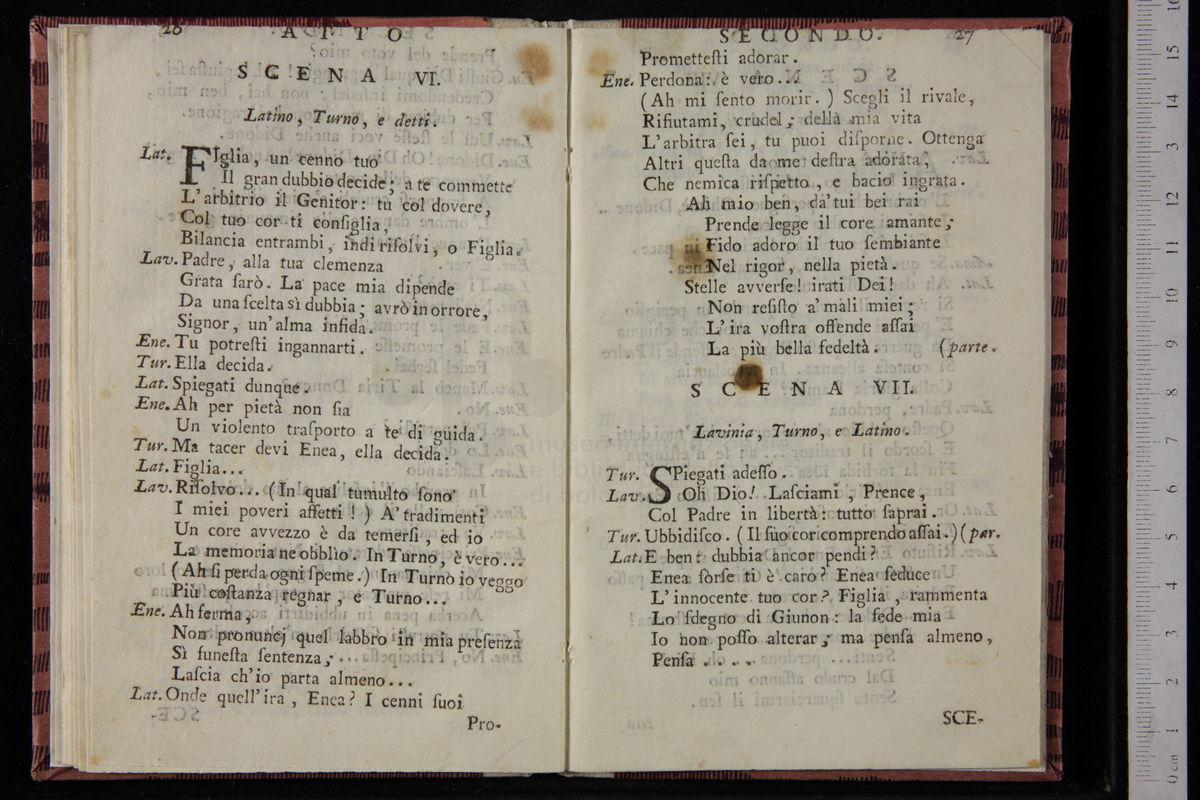 26 A T T O
SCENA VI.
Latino, Turno, e detti.
Lat. FIglia, un cenno tuo
Il gran dubbio decide; a te commette
L'arbitrio il Genitor: tu col dovere,
Col tuo cor ti consiglia,
Bilancia entrambi, indi risolvi, o Figlia.
Lav. Padre, alla tua clemenza
Grata sarò. La pace mia dipende
Da una scelta sì dubbia; avrò in orrore,
Signor, un'alma infida.
Ene. Tu potresti ingannarti.
Tur. Ella decida.
Lat. Spiegati dunque.
Ene. Ah per pietà non sia
Un violento trasporto a te di guida.
Tur. Ma tacer devi Enea, ella decida.
Lat. Figlia...
Lav. Risolvo... (In qual tumulto sono
I miei poveri affetti!) A' tradimenti
Un core avvezzo è da temersi, ed io
La memoria ne obblìo. In Turno, è vero...
(Ah si perda ogni speme.) In Turno io veggo
Più costanza regnar, e Turno...
Ene. Ah ferma,
Non pronuncj quel labbro in mia presenza
Sì funesta sentenza;
Lascia ch'io parta almeno...
Lat. Onde quell'ira, Enea? I cenni suoi
Pro-
SECONDO. 27
Promettesti adorar.
Ene. Perdona: è vero...
(Ah mi sento morir.) Scegli il rivale,
Rifiutami, crudel; della mia vita
L'arbitra sei, tu puoi disporne. Ottenga
Altri questa da me destra adorata,
Che nemica rispetto, e bacio ingrata.
Ah mio ben, da' tui bei rai
Prende legge il core amante;
Fido adoro il tuo sembiante
Nel rigor, nella pietà.
Stelle avverse! irati Dei!
Non resisto a' mali miei;
L'ira vostra offende assai
La più bella fedeltà. (parte.
SCENA VII.
Lavinia, Turno, e Latino.
Tur. SPiegati adesso.
Lav. Oh Dio! Lasciami, Prence,
Col Padre in libertà: tutto saprai.
Tur. Ubbidisco. (Il suo cor comprendo assai.) (par.
Lat. E ben? dubbia ancor pendi?
Enea forse ti è caro? Enea seduce
L'innocente tuo cor? Figlia, rammenta
Lo sdegno di Giunon: la fede mia
Io non posso alterar; ma pensa almeno,
Pensa ....
SCE-